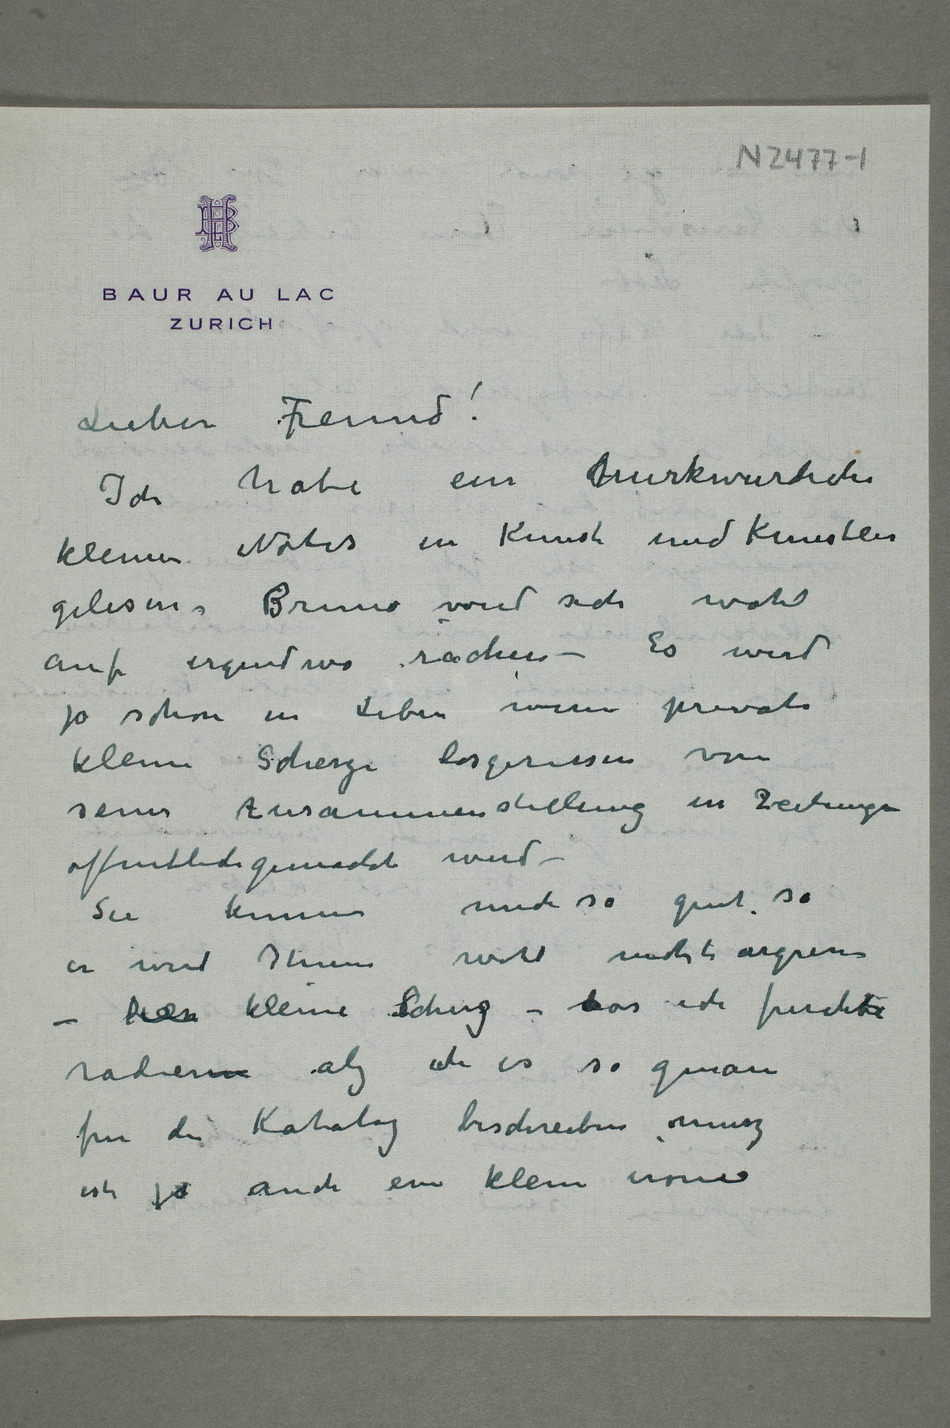 N2477-1
HB
BAUR AU LAC
ZURICH
Lieber Freund!
Ich habe ein Merkwurdiche
kleine Notes in Kunst und Kunstler
gelesen. Bruno vord sich wohl
auf irgendwo rächen – Es wird
jo schon in Leben wenn private
kleine Scherze losgerissen von
seiner Zusammenstellung in Zeitunge
öffentlich gemacht wird –
Sie kennen mich so gut, so
er wird Ihnen wohl nicht argren
– kleine Scherz – das ich
radieren alz ich es so genau
für die Katalog beschreiben musz
ist jo auch ein klein ironie